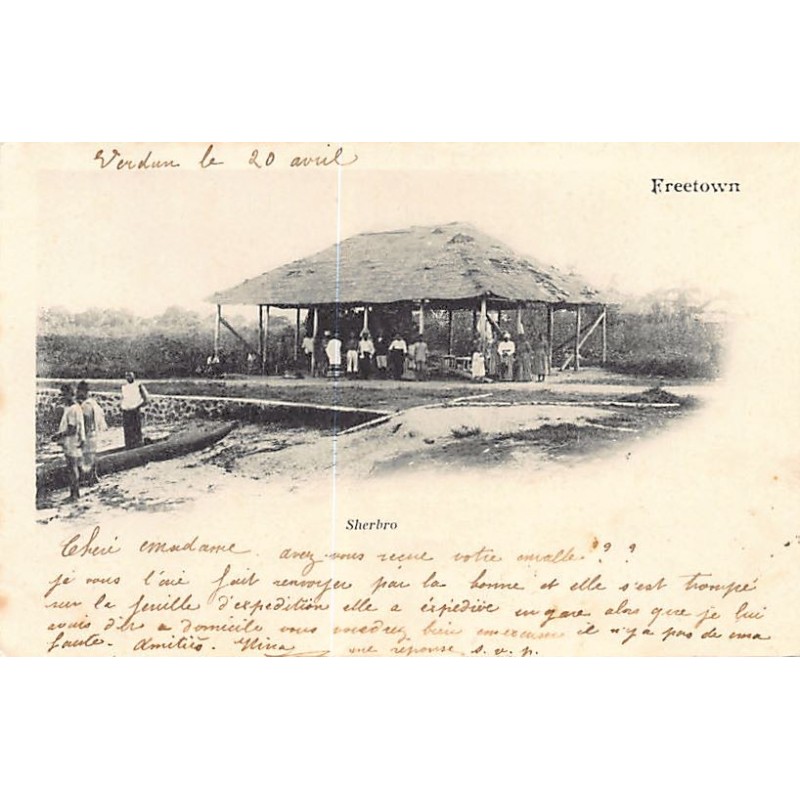 Verdun le 20 avril
Freetown
Sherbro
Cheré madame. avez-vous recue votre malle ? ?
je vous l'aie fait renvoyer par la bonne et elle s'est trompé
sur la feuille d'expedition elle a éxpédiée en gare alors que je lui
avais dit a domicile vous voudrez bien il n'y a pas de ma
faute. Amitiés. Nina une réponse s. v. p.